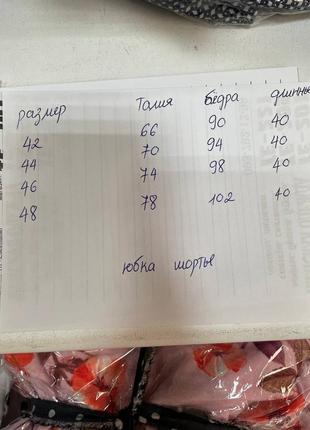 размер Талия бёдра длинны
42 66 90 40
44 70 94 40
46 74 98 40
48 78 102 40
юбка шорты